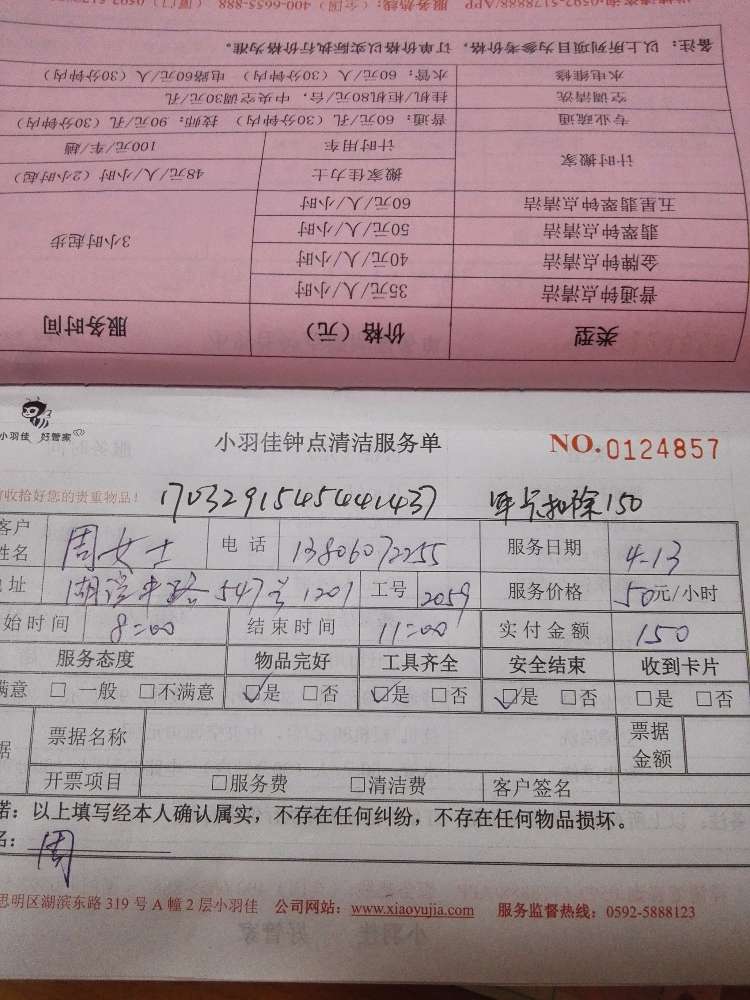 备注：以上所列项目为参考价格，订单价格以实际执行价格为准。
水电维修 水管：60元/人（30分钟内） 电路60元/人（30分钟内）
空调清洗 挂机/柜机80元/台，中央空调30元/孔
专业疏通 普通：60元/孔（30分钟内） 技师：90元/孔（30分钟内）
计时搬家 计时用车 100元/车/趟
搬家佳力士 48元/人/小时（2小时起）
五星翡翠钟点清洁 60元/人/小时 3小时起步
翡翠钟点清洁 50元/人/小时
金牌钟点清洁 40元/人/小时
普通钟点清洁 35元/人/小时
类型 价格（元） 服务时间
小羽佳 好管家
小羽佳钟点清洁服务单 NO.0124857
收拾好您的贵重物品！ 1703291545441437 单卡扣除150
客户姓名 周女士 电话 13806072255 服务日期 4-13
址 547号1201 工号 2059 服务价格 50元/小时
始时间 8:00 结束时间 11:00 实付金额 150
服务态度 物品完好 工具齐全 安全结束 收到卡片
满意 □一般 □不满意 ☑是 □否 ☑是 □否 ☑是 □否 □是 □否
据 票据名称 票据金额
开票项目 □服务费 □清洁费 客户签名
诺：以上填写经本人确认属实，不存在任何纠纷，不存在任何物品损坏。
名：周
思明区湖滨东路319号A幢2层小羽佳 公司网站：www.xiaoyujia.com 服务监督热线：0592-5888123